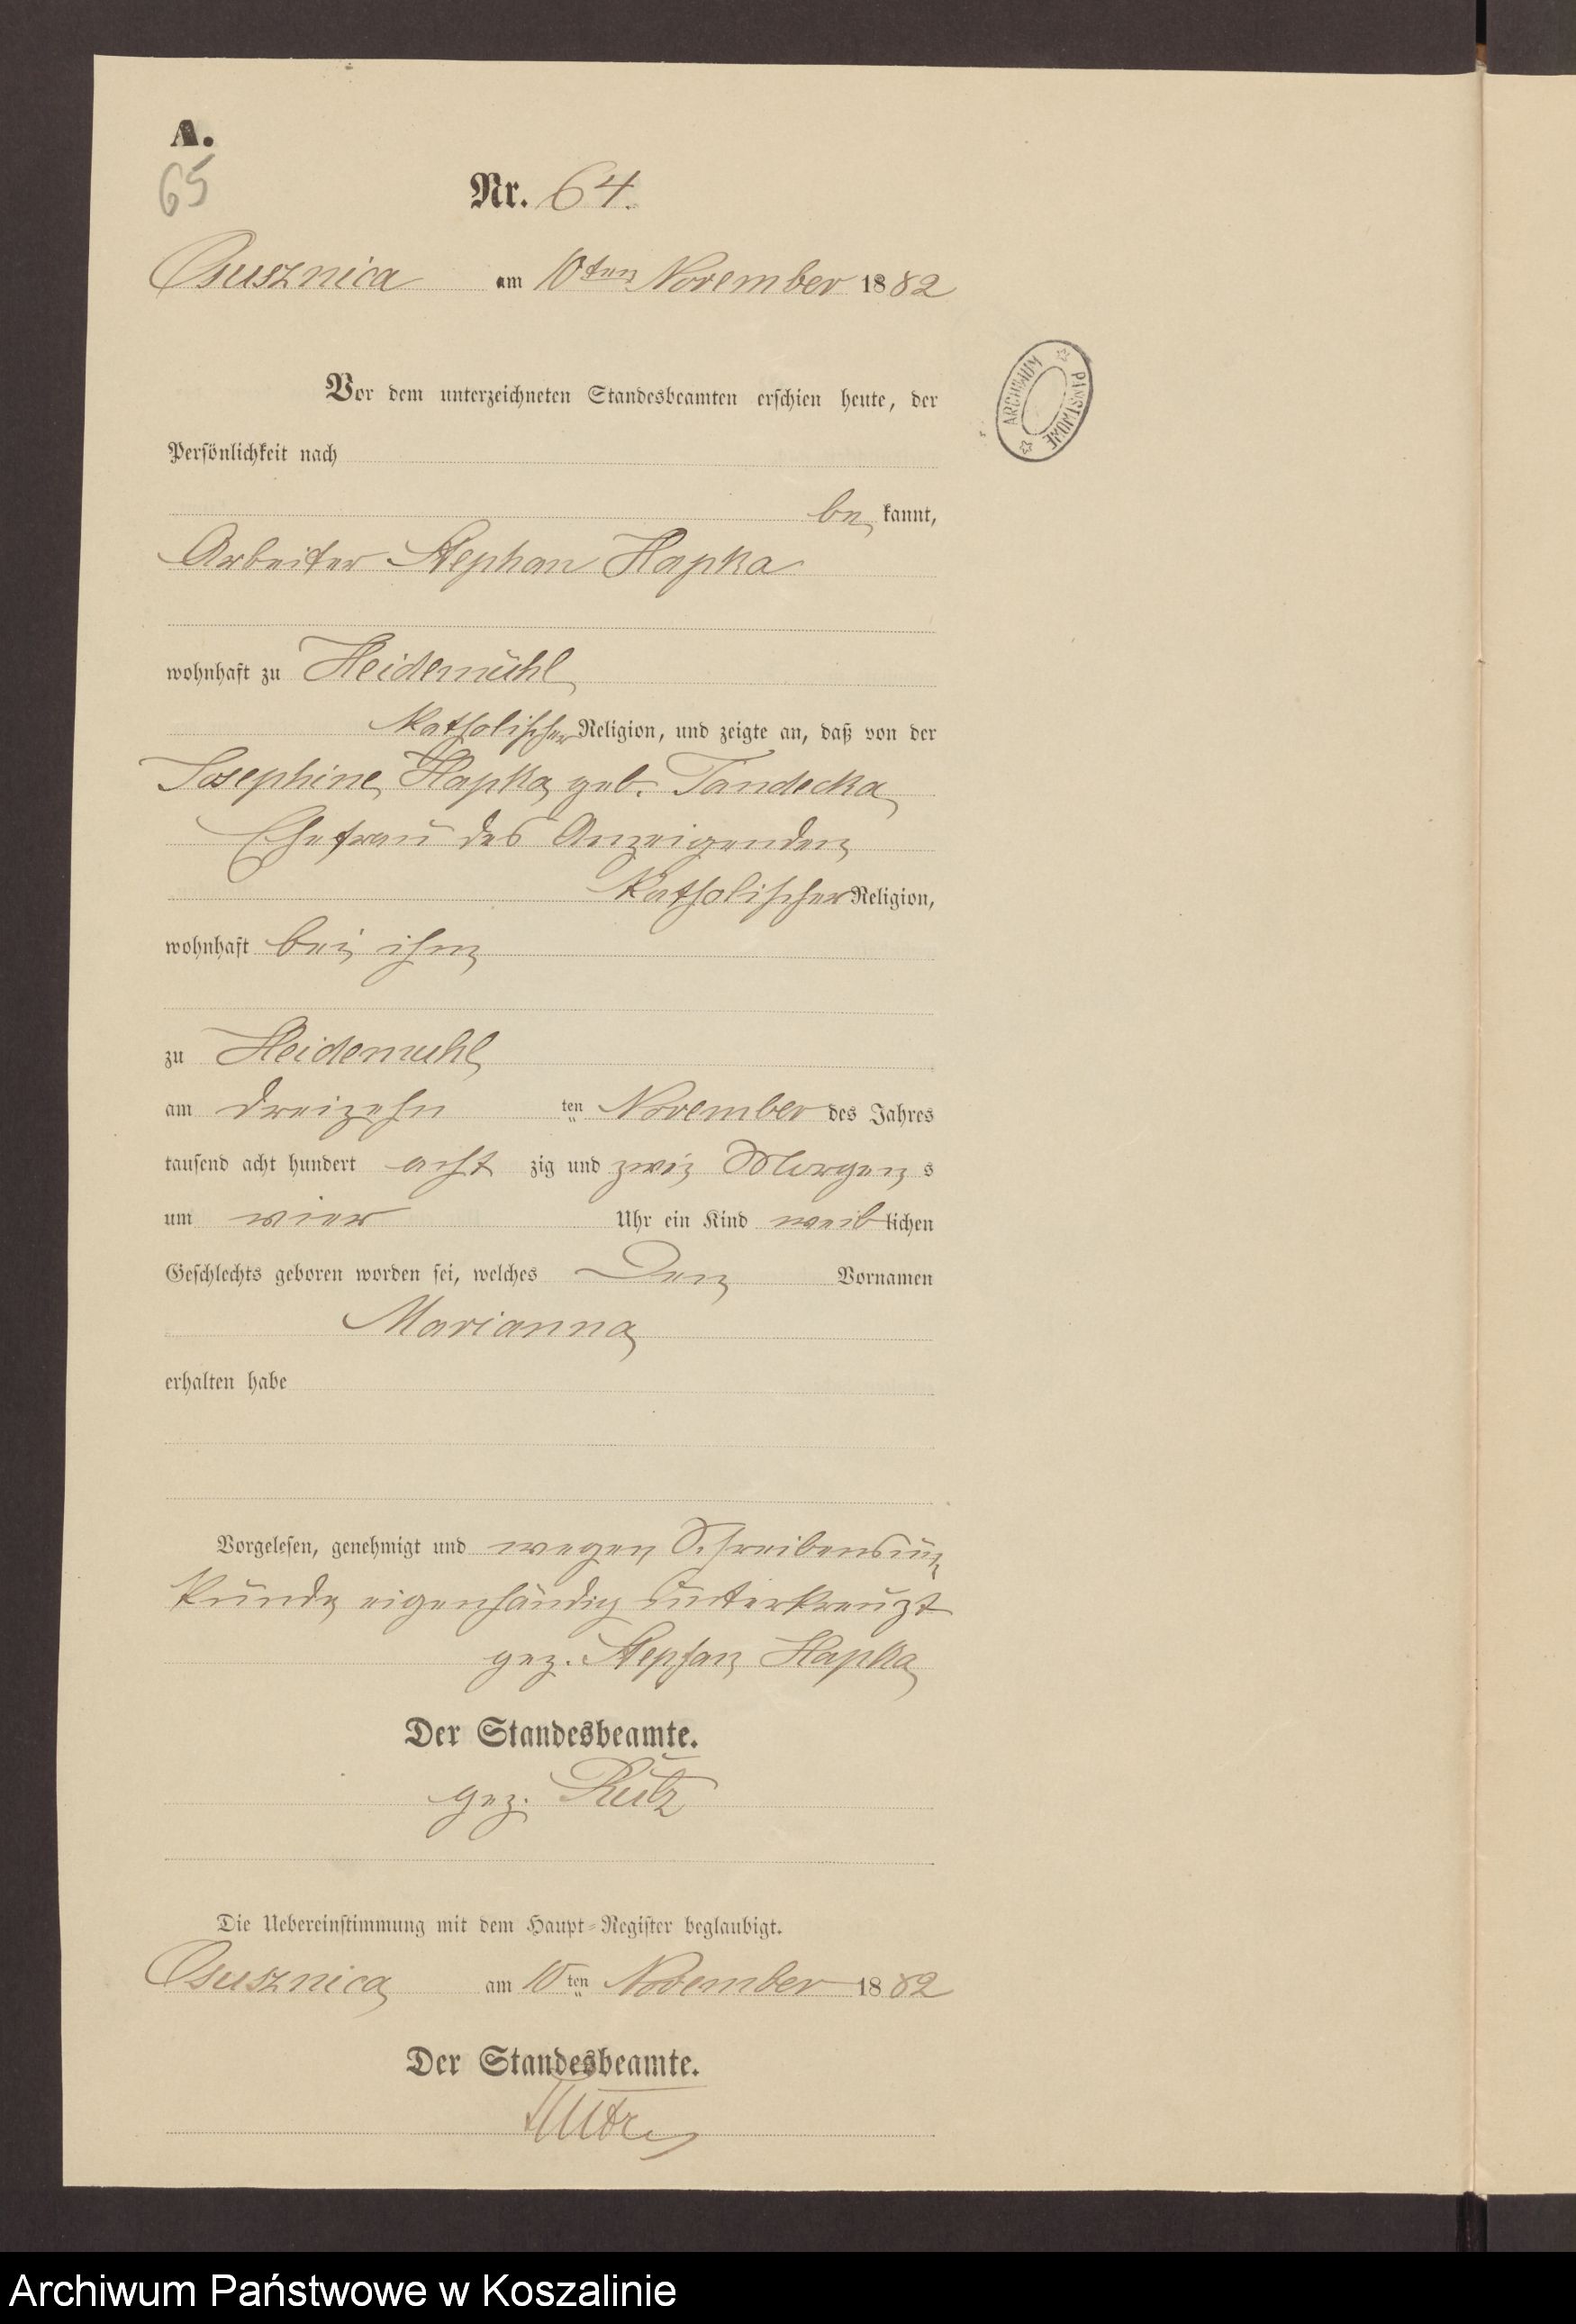 A.
65
Nr. 64.
Osusznica am 10ten November 1882
Vor dem unterzeichneten Standesbeamten erschien heute, der
Persönlichkeit nach
be kannt,
Arbeiter Stephan Hapka
wohnhaft zu Heidemühl
Katholischer Religion, und zeigte an, daß von der
Josephine Hapka geb. Tandecka
Ehefrau des Anzeigenden
Katholischer Religion,
wohnhaft bei ihm
zu Heidemuhl
am dreizehn ten November des Jahres
tausend acht hundert acht zig und zwei Morgens
um vier Uhr ein Kind weiblichen
Geschlechts geboren worden sei, welches den Vornamen
Marianna
erhalten habe
Vorgelesen, genehmigt und wegen Schreibensun
kunde eigenhändig unterkreuzt
gez. Stephan Hapka
Der Standesbeamte.
gez. Rutz
Die Uebereinstimmung mit dem Haupt-Register beglaubigt.
Osusznica am 10ten November 1882
Der Standesbeamte.
Rutz
ARCHIWUM PAŃSTWOWE
Archiwum Państwowe w Koszalinie